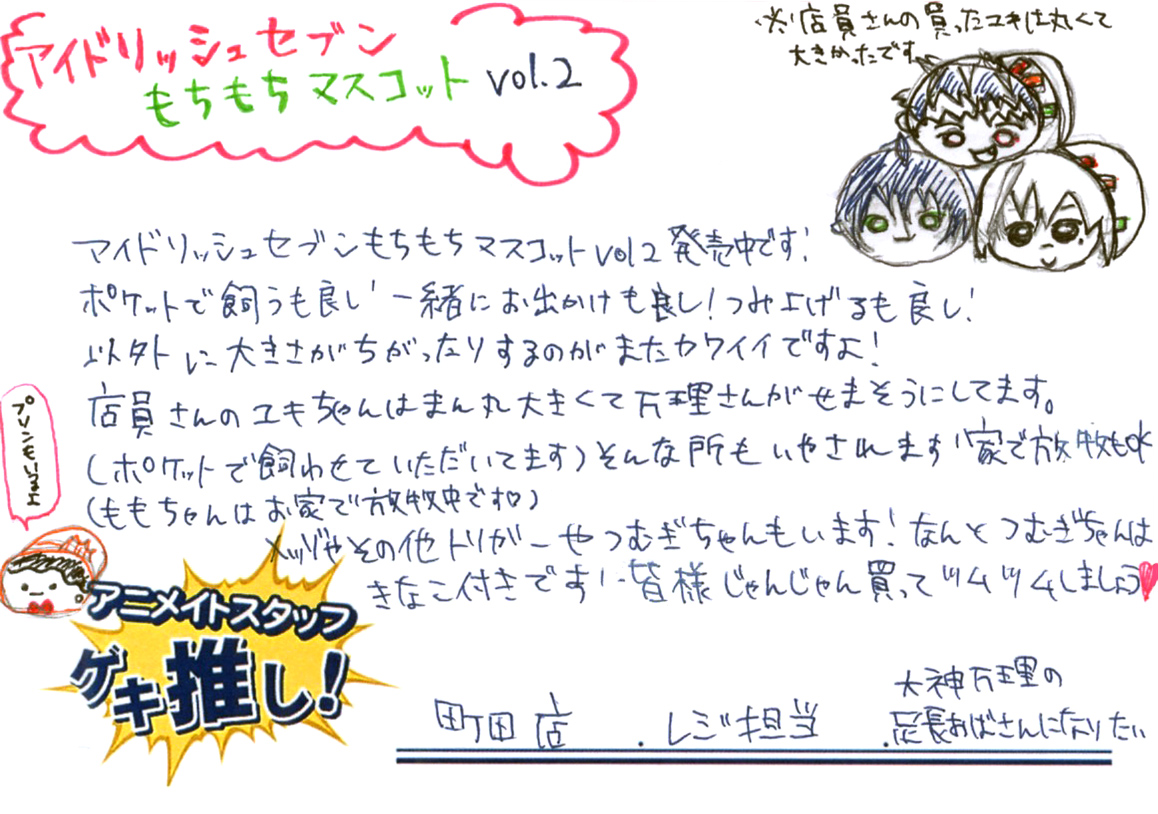 アイドリッシュセブン
もちもちマスコット vol.2
※店員さんの買ったユキは丸くて
大きかったです
アイドリッシュセブンもちもちマスコットvol2発売中です!
ポケットで飼うも良し!一緒にお出かけも良し!つみ上げるも良し!
以外に大きさがちがったりするのがまたカワイイですよ!
店員さんのユキちゃんはまん丸大きくて万理さんがせまそうにしてます。
(ポケットで飼わせていただいてます)そんな所もいやされます!家で放牧もok
(ももちゃんはお家で放牧中です♡)
メッゾやその他トリガーやつむぎちゃんもいます!なんとつむぎちゃんは
きなこ付きです!皆様じゃんじゃん買ってツムツムしましょう♥
プリンもいるよ
アニメイトスタッフ
ゲキ推し!
町田店 . レジ担当 .
大神万理の
足長おばさんになりたい